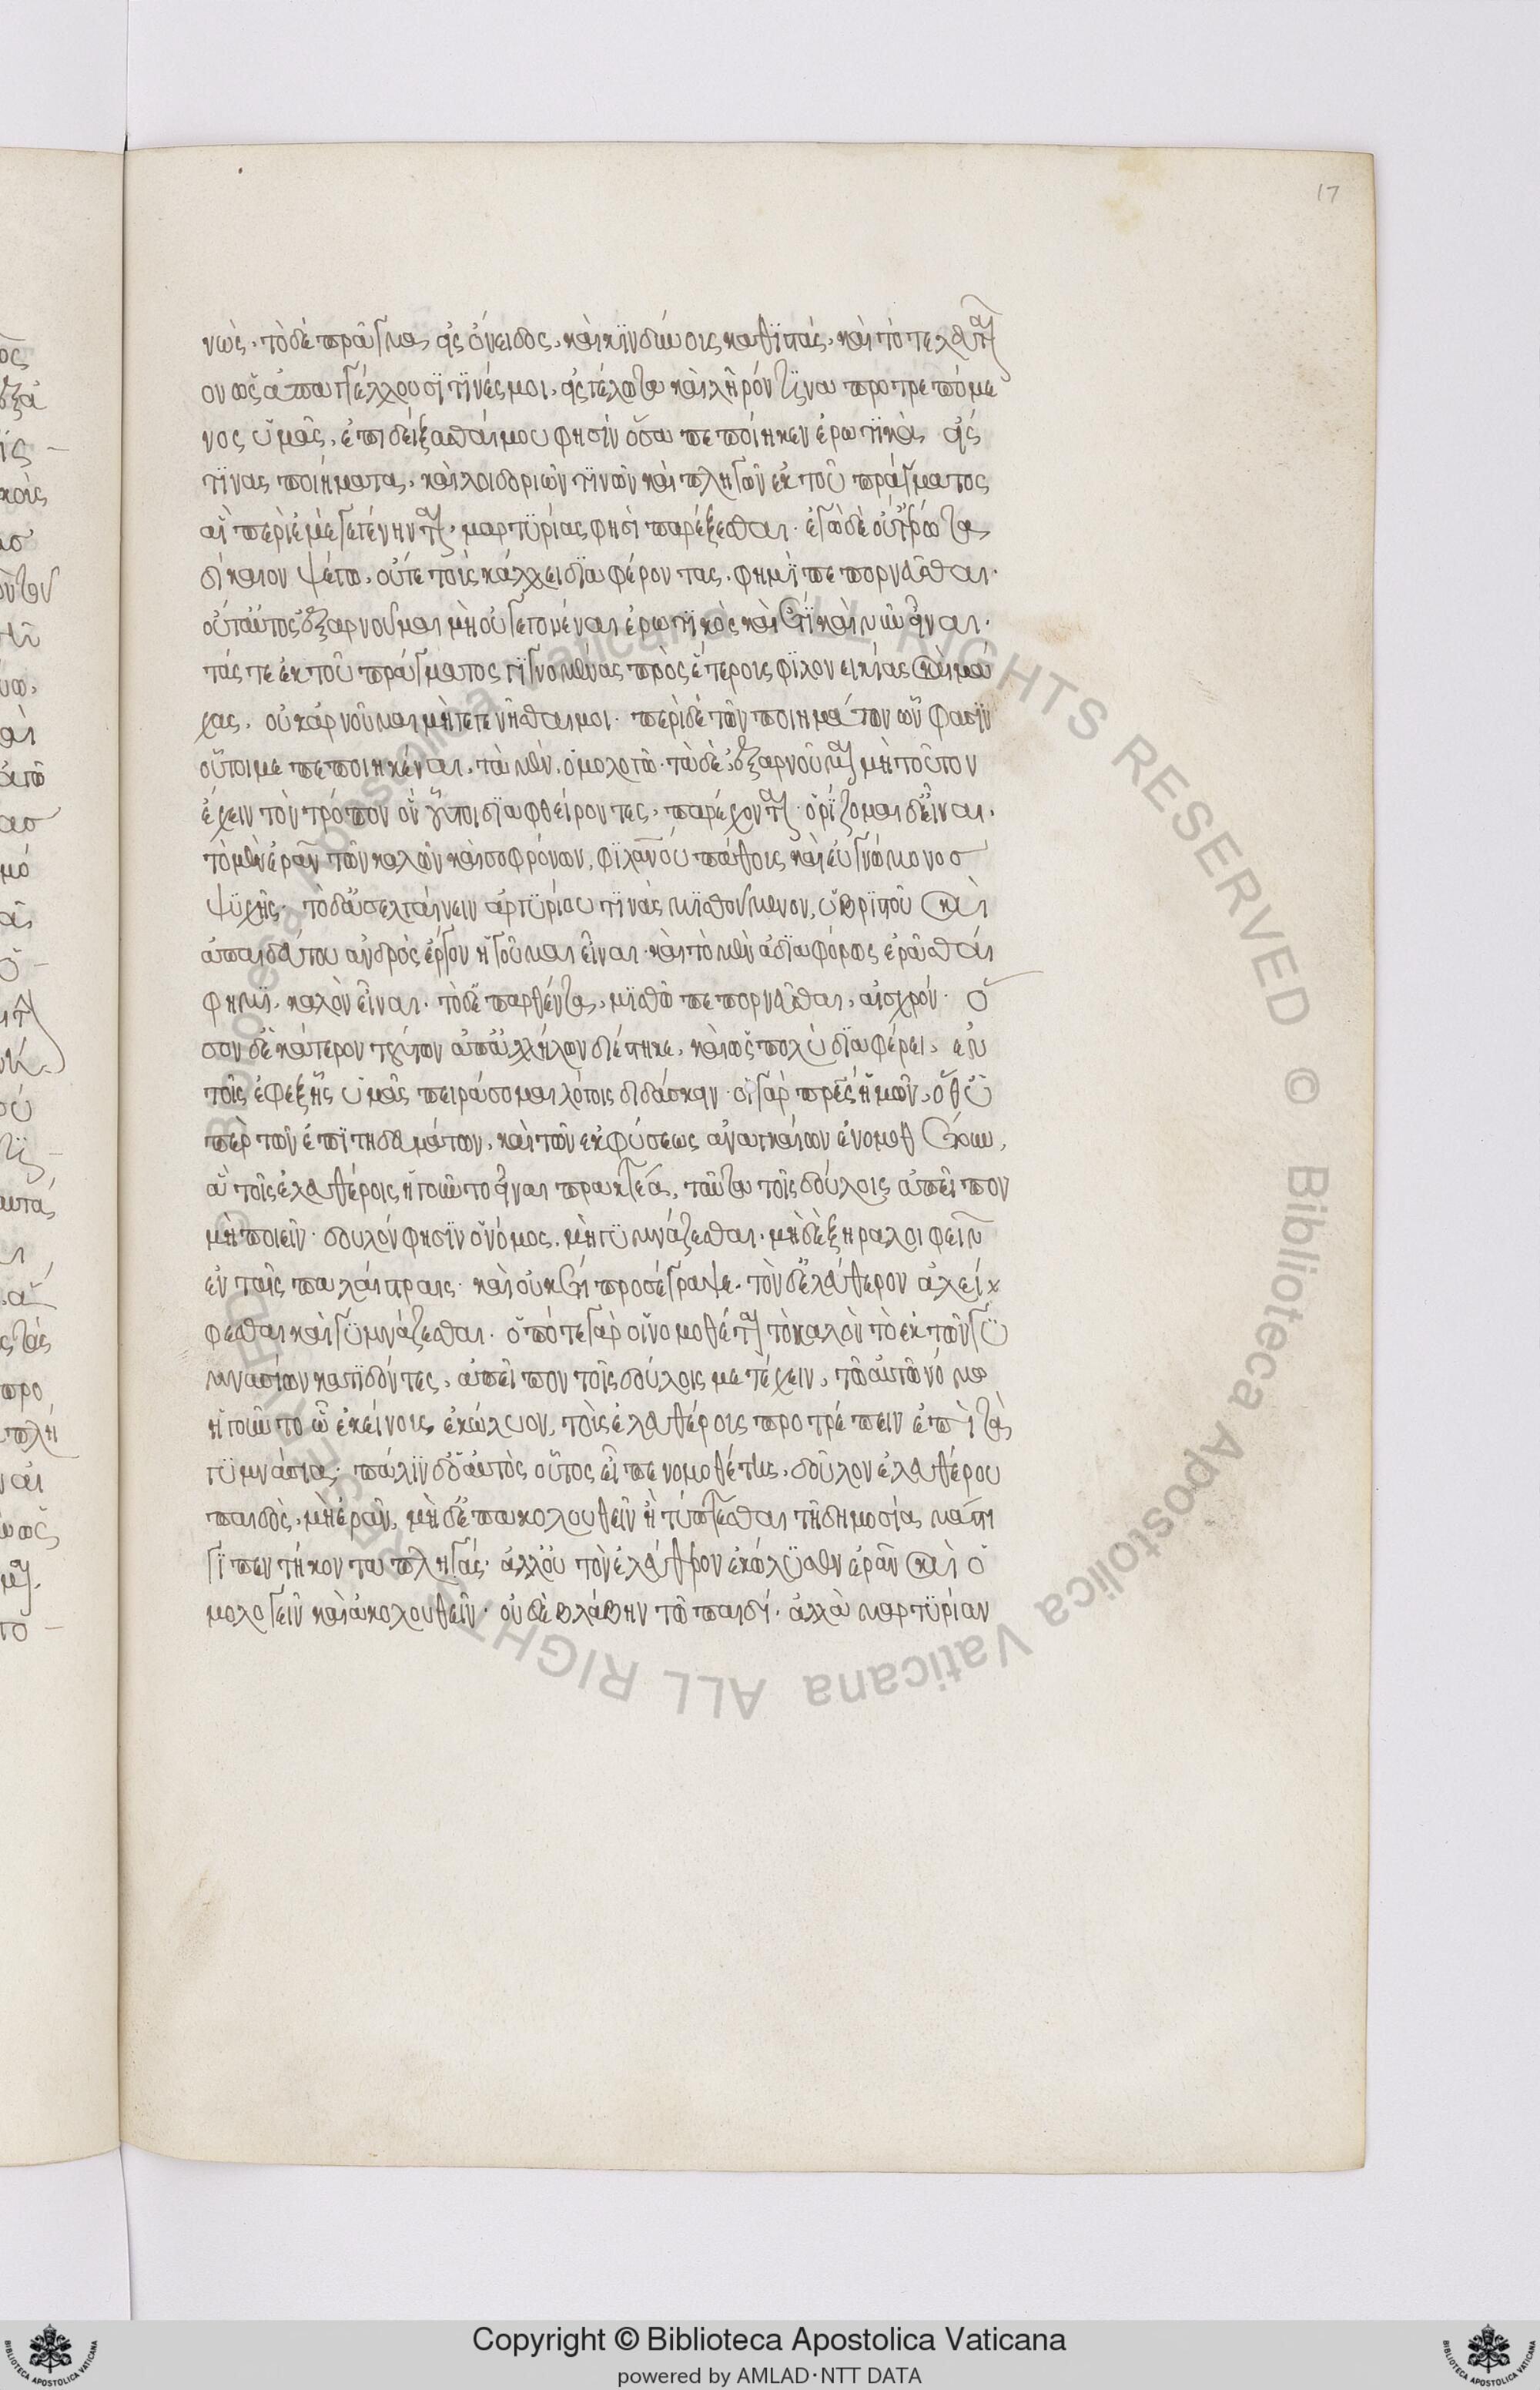 17
νὼς· τὸ δὲ πρᾶγμα εἰς ὄνειδος, καὶ κινδύνους καθιστάς· καὶ τὸ τελευταῖ
ον ὡς ἀπαγγέλλουσί τινές μοι, εἰς γέλωτα καὶ λῆρόν τινα προτρεπόμε
νος ὑμᾶς, ἐπιδείξασθαί μου φησὶν ὅσα πεποίηκεν ἐρωτικὰ εἰς
τινας ποιήματα, καὶ λοιδοριῶν τινῶν καὶ πληγῶν ἐκ τοῦ πράγματος
αἳ περὶ ἐμὲ γεγένηνται, μαρτυρίας φησὶ παρέξεσθαι· ἐγὼ δὲ οὔτ' ἔρωτα
δίκαιον ψέγω, οὔτε τοὺς κάλλει διαφέροντας, φημὶ πεπορνεῦσθαι·
οὔτ' αὐτὸς ἐξαρνοῦμαι μὴ οὐ γεγονέναι ἐρωτικὸς καὶ ἔτι καὶ νῦν εἶναι·
τάς τε ἐκ τοῦ πράγματος γιγνομένας πρὸς ἑτέρους φιλονεικίας καὶ μά
χας, οὐκ ἀρνοῦμαι μὴ γεγενῆσθαι μοι· περὶ δὲ τῶν ποιημάτων ὧν φασιν
οὗτοι με πεποιηκέναι, τὰ μὲν, ὁμολογῶ· τὰ δὲ, ἐξαρνοῦμαι μὴ τοῦτον
ἔχειν τὸν τρόπον ὃν οὗτοι διαφθείροντες, παρέχονται· ὁρίζομαι δ' εἶναι,
τὸ μὲν ἐρᾶν τῶν καλῶν καὶ σοφρόνων, φιλανου πάθους καὶ εὐγνώμονοσ
ψυχῆς· τὸ δ' ἀσελγαίνειν ἀργυρίου τινὰς μισθούμενον, ὑβριστοῦ καὶ
ἀπαιδεύτου ἀνδρὸς ἔργον ἡγοῦμαι εἶναι· καὶ τὸ μὲν ἀδιαφόρως ἐρᾶσθαι
φημὶ, καλὸν εἶναι· τὸ δ' ἐπαρθέντα, μισθῷ πεπορνεῦσθαι, αἰσχρόν· ὅ
σον δ' ἑκάτερον τούτων ἀπ' ἀλλήλων διέστηκε, καὶ ὡς πολὺ διαφέρει, ἐν
τοῖς ἐφεξῆς ὑμᾶς πειράσομαι λόγοις διδάσκειν· οἱ γὰρ πρες ἡμῶν, ὅθ' ὑ
πὲρ τῶν ἐπιτηδευμάτων, καὶ τῶν ἐκ φύσεως ἀναγκαίων ἐνομοθέτουν,
ἃ τοῖς ἐλευθέροις ἡγοῦντο εἶναι πρακτέα, ταῦτα τοῖς δούλοις ἀπεῖπον
μὴ ποιεῖν· δοῦλόν φησιν ὁ νόμος, μὴ γυμνάζεσθαι, μηδὲ ξηραλοιφεῖν
ἐν ταῖς παλαίστραις· καὶ οὐκέτι προσέγραψε, τὸν δ' ἐλεύθερον ἀλεί
φεσθαι καὶ γυμνάζεσθαι· ὁπότε γὰρ οἱ νομοθέται τὸ καλὸν τὸ ἐκ τῶν γυ
μνασίων κατιδόντες, ἀπεῖπον τοῖς δούλοις μετέχειν, τῷ αὐτῷ νόμῳ
ἡγοῦντο ᾧ ἐκείνους ἐκώλυον, τοὺς ἐλευθέρους προτρέπειν ἐπὶ τὰ
γυμνάσια· πάλιν ὁ αὐτὸς οὗτος εἶπε νομοθέτης, δοῦλον ἐλευθέρου
παιδὸς, μὴ ἐρᾶν, μὴ δ' ἐπακολουθεῖν ἢ τύπτεσθαι τῇ δημοσίᾳ μάστι
γι πεντήκοντα πληγάς· ἀλλ' οὐ τὸν ἐλεύθερον ἐκώλυσεν ἐρᾶν καὶ ὁ
μολογεῖν καὶ ἀκολουθεῖν· οὐδὲ βλάβην τῷ παιδί· ἀλλὰ μαρτυρίαν
Copyright © Biblioteca Apostolica Vaticana
powered by AMLAD·NTT DATA